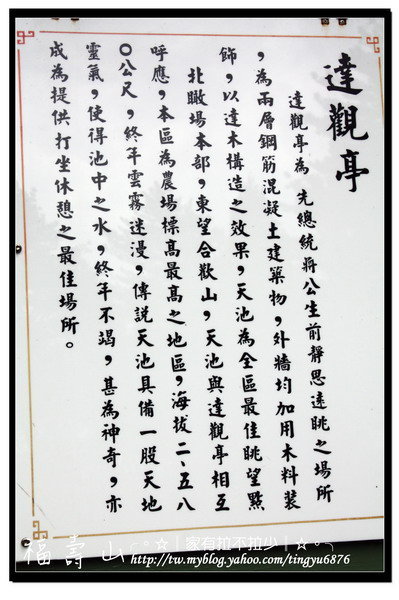 達觀亭
達觀亭為 先總統蔣公生前靜思遠眺之場所
，為兩層鋼筋混凝土建築物，外牆均加用木料裝
飾，以達木構造之效果，天池為全區最佳眺望點
北瞰場本部，東望合歡山，天池與達觀亭相互
呼應，本區為農場標高最高之地區，海拔二、五八
○公尺，終年雲霧迷漫，傳說天池具備一股天地
靈氣，使得池中之水，終年不竭，甚為神奇，亦
成為提供打坐休憩之最佳場所。
福壽山 ☆｜家有拉不拉少｜☆
http://tw.myblog.yahoo.com/tingyu6876